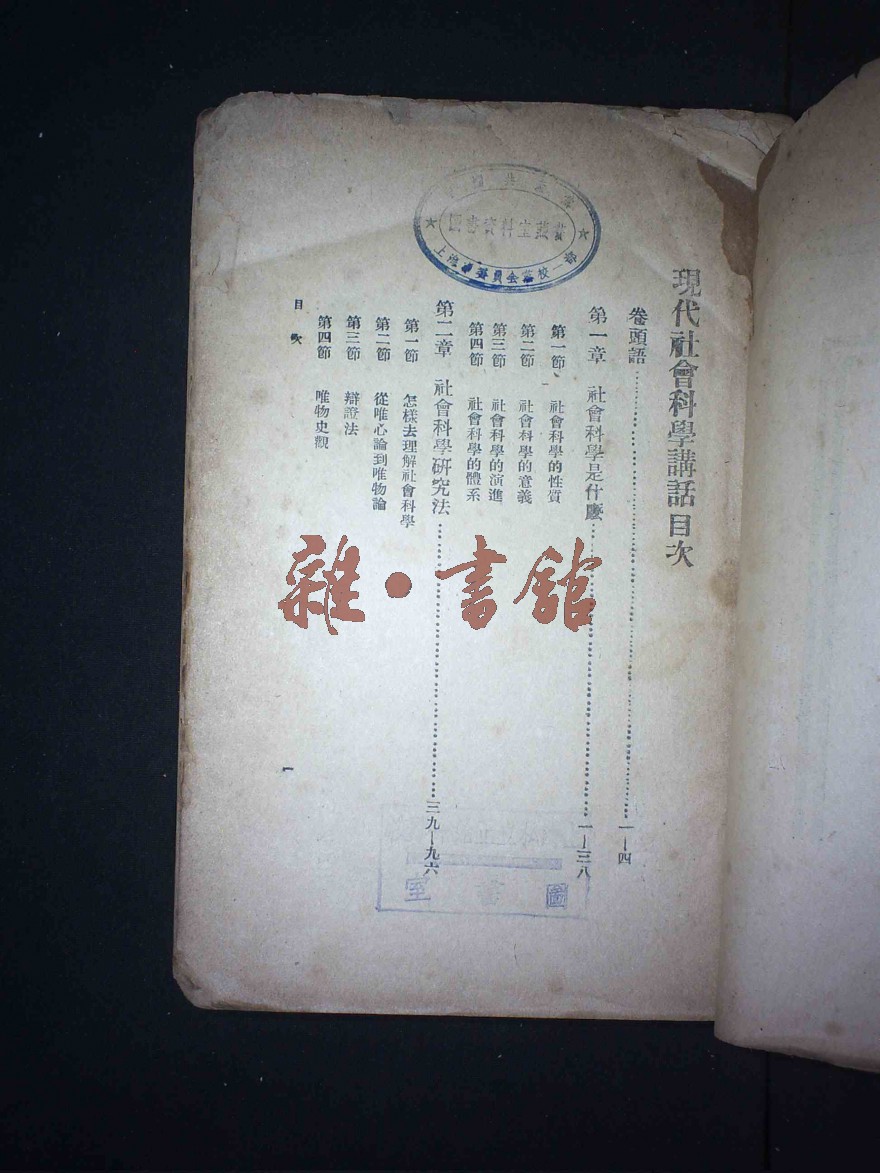 現代社會科學講話目次
卷頭語……一—四
第一章 社會科學是什麽……一—三八
第一節 社會科學的性質
第二節 社會科學的意義
第三節 社會科學的演進
第四節 社會科學的體系
第二章 社會科學硏究法……三九—九六
第一節 怎樣去理解社會科學
第二節 從唯心論到唯物論
第三節 辯證法
第四節 唯物史觀
目次
一
圖書資料室藏書
上海市委員會黨校一部
雜·書館
圖書室